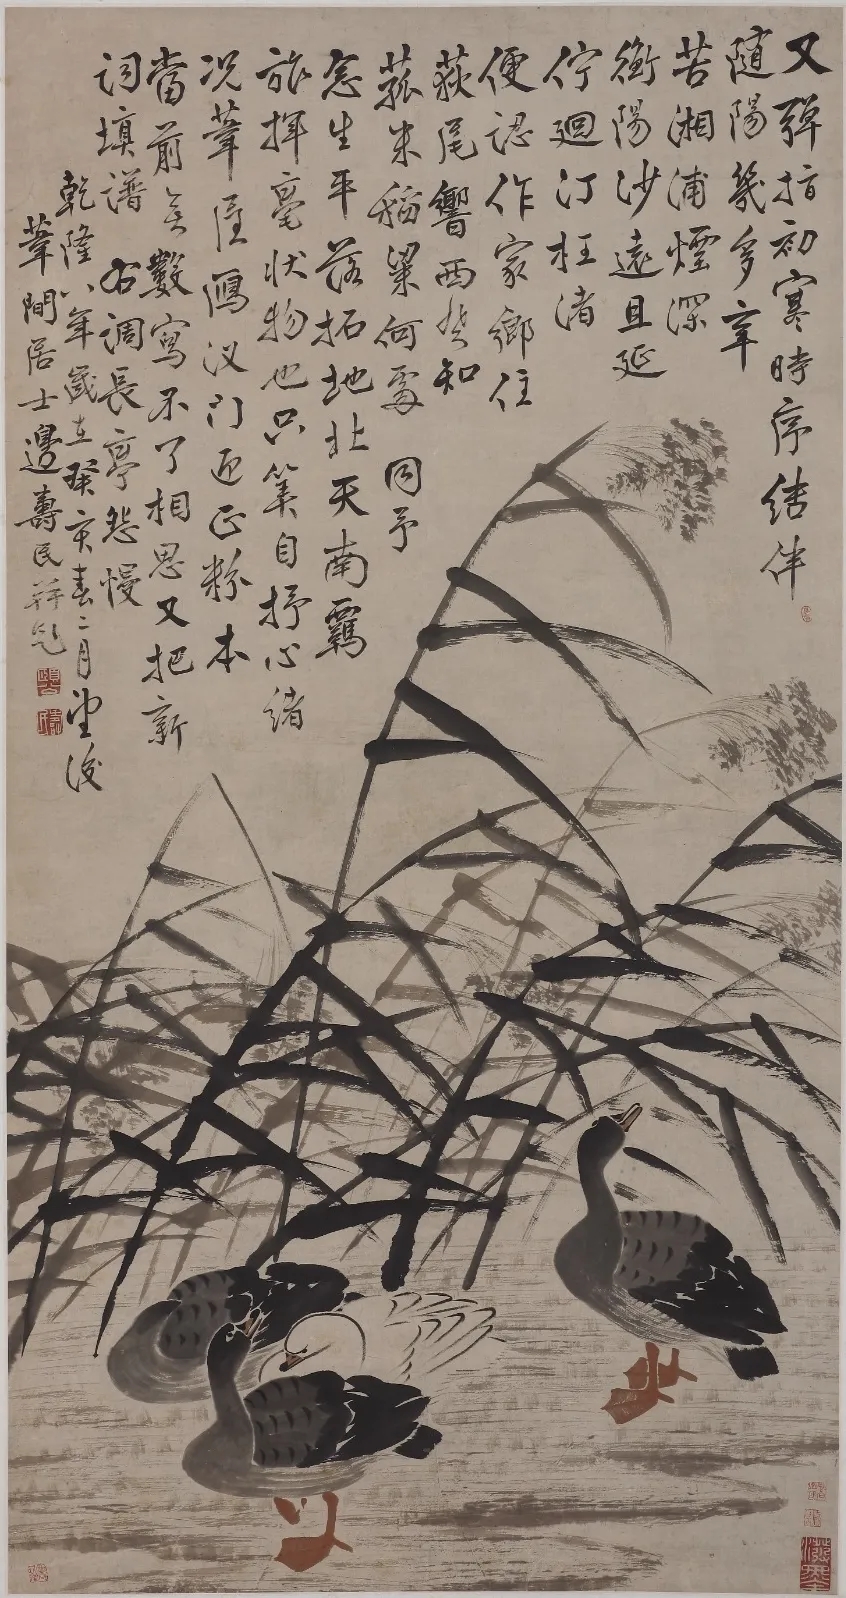 又彈指初寒時序結伴
隨陽幾多辛
苦湘浦煙深
衡陽沙遠且延
佇迴汀枉渚
便認作家鄉住
荻尾響西風知
菰米稻粱何處 同予
念生平落拓地北天南羈
旅揮毫状物也只算自抒心緒
况葦屋臨汊門迎正粉本
當前無數寫不了相思又把新
詞填譜 右調長亭怨慢
乾隆八年歲在癸亥春二月望後
葦間居士邊壽民并題